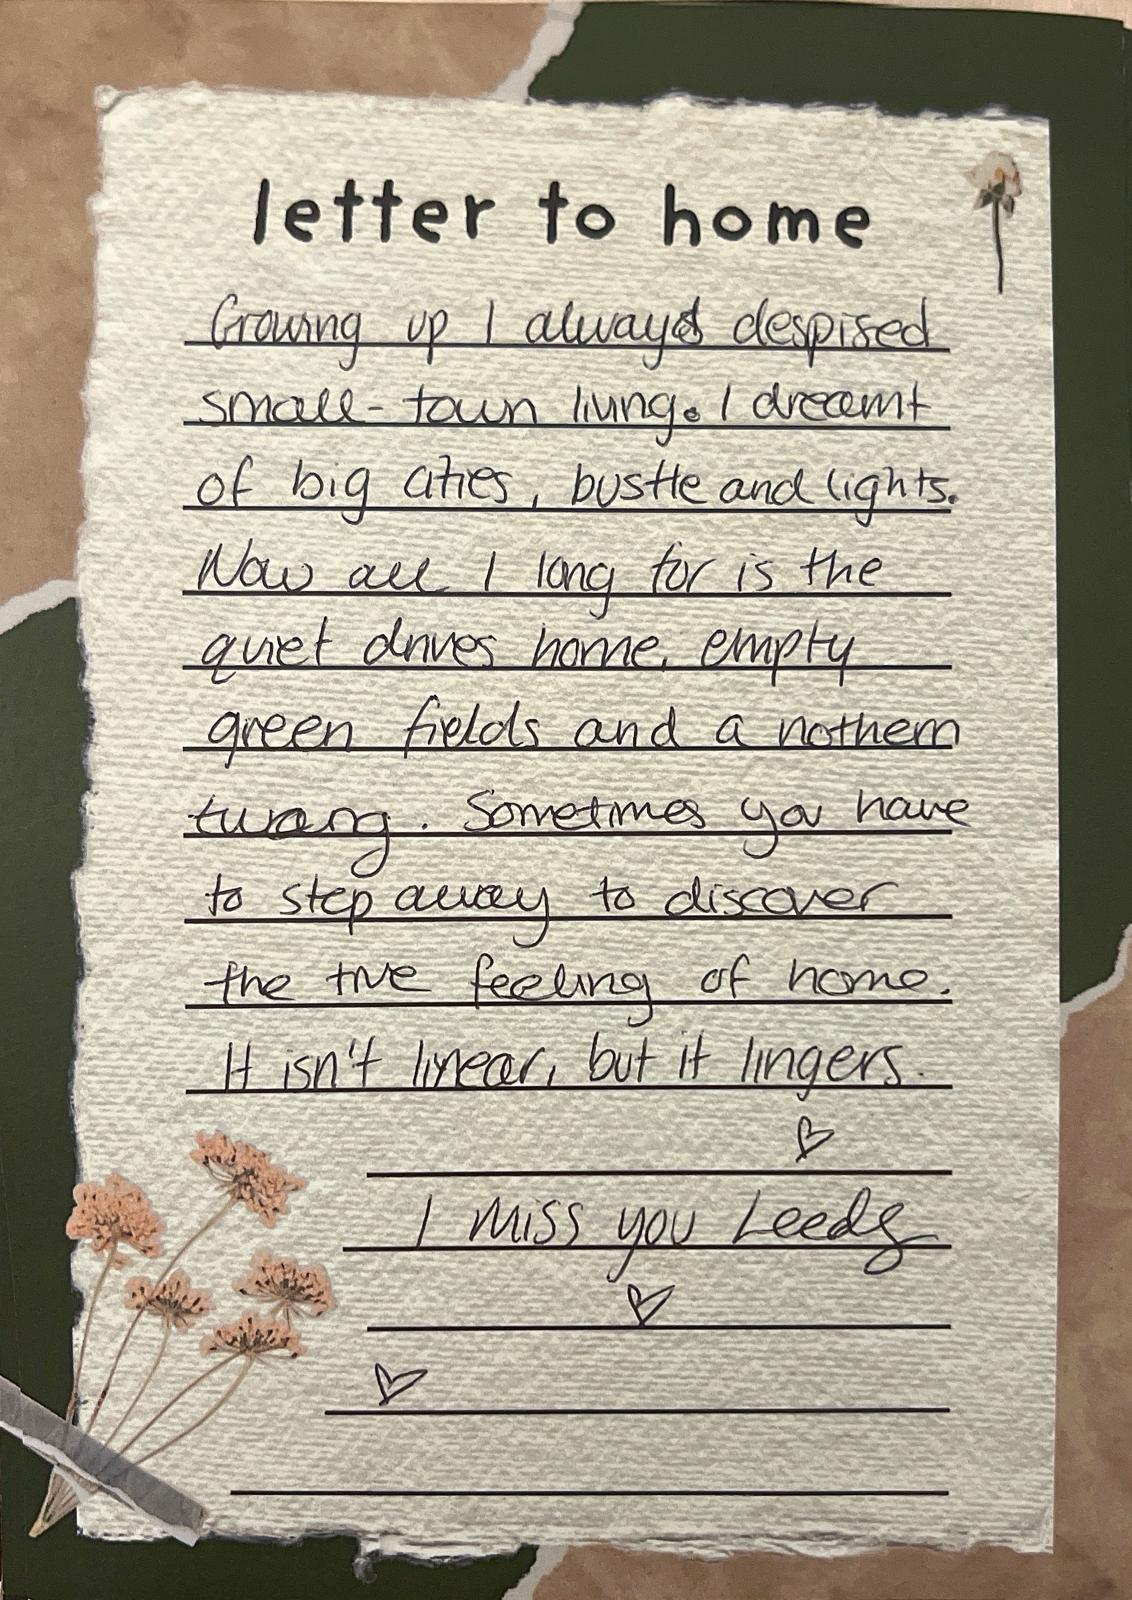 letter to home
Growing up I always despised
small-town living. I dreamt
of big cities, bustle and lights.
Now all I long for is the
quiet drives home, empty
green fields and a nothern
twang. Sometimes you have
to step away to discover
the true feeling of home.
It isn't linear, but it lingers.
I miss you Leeds